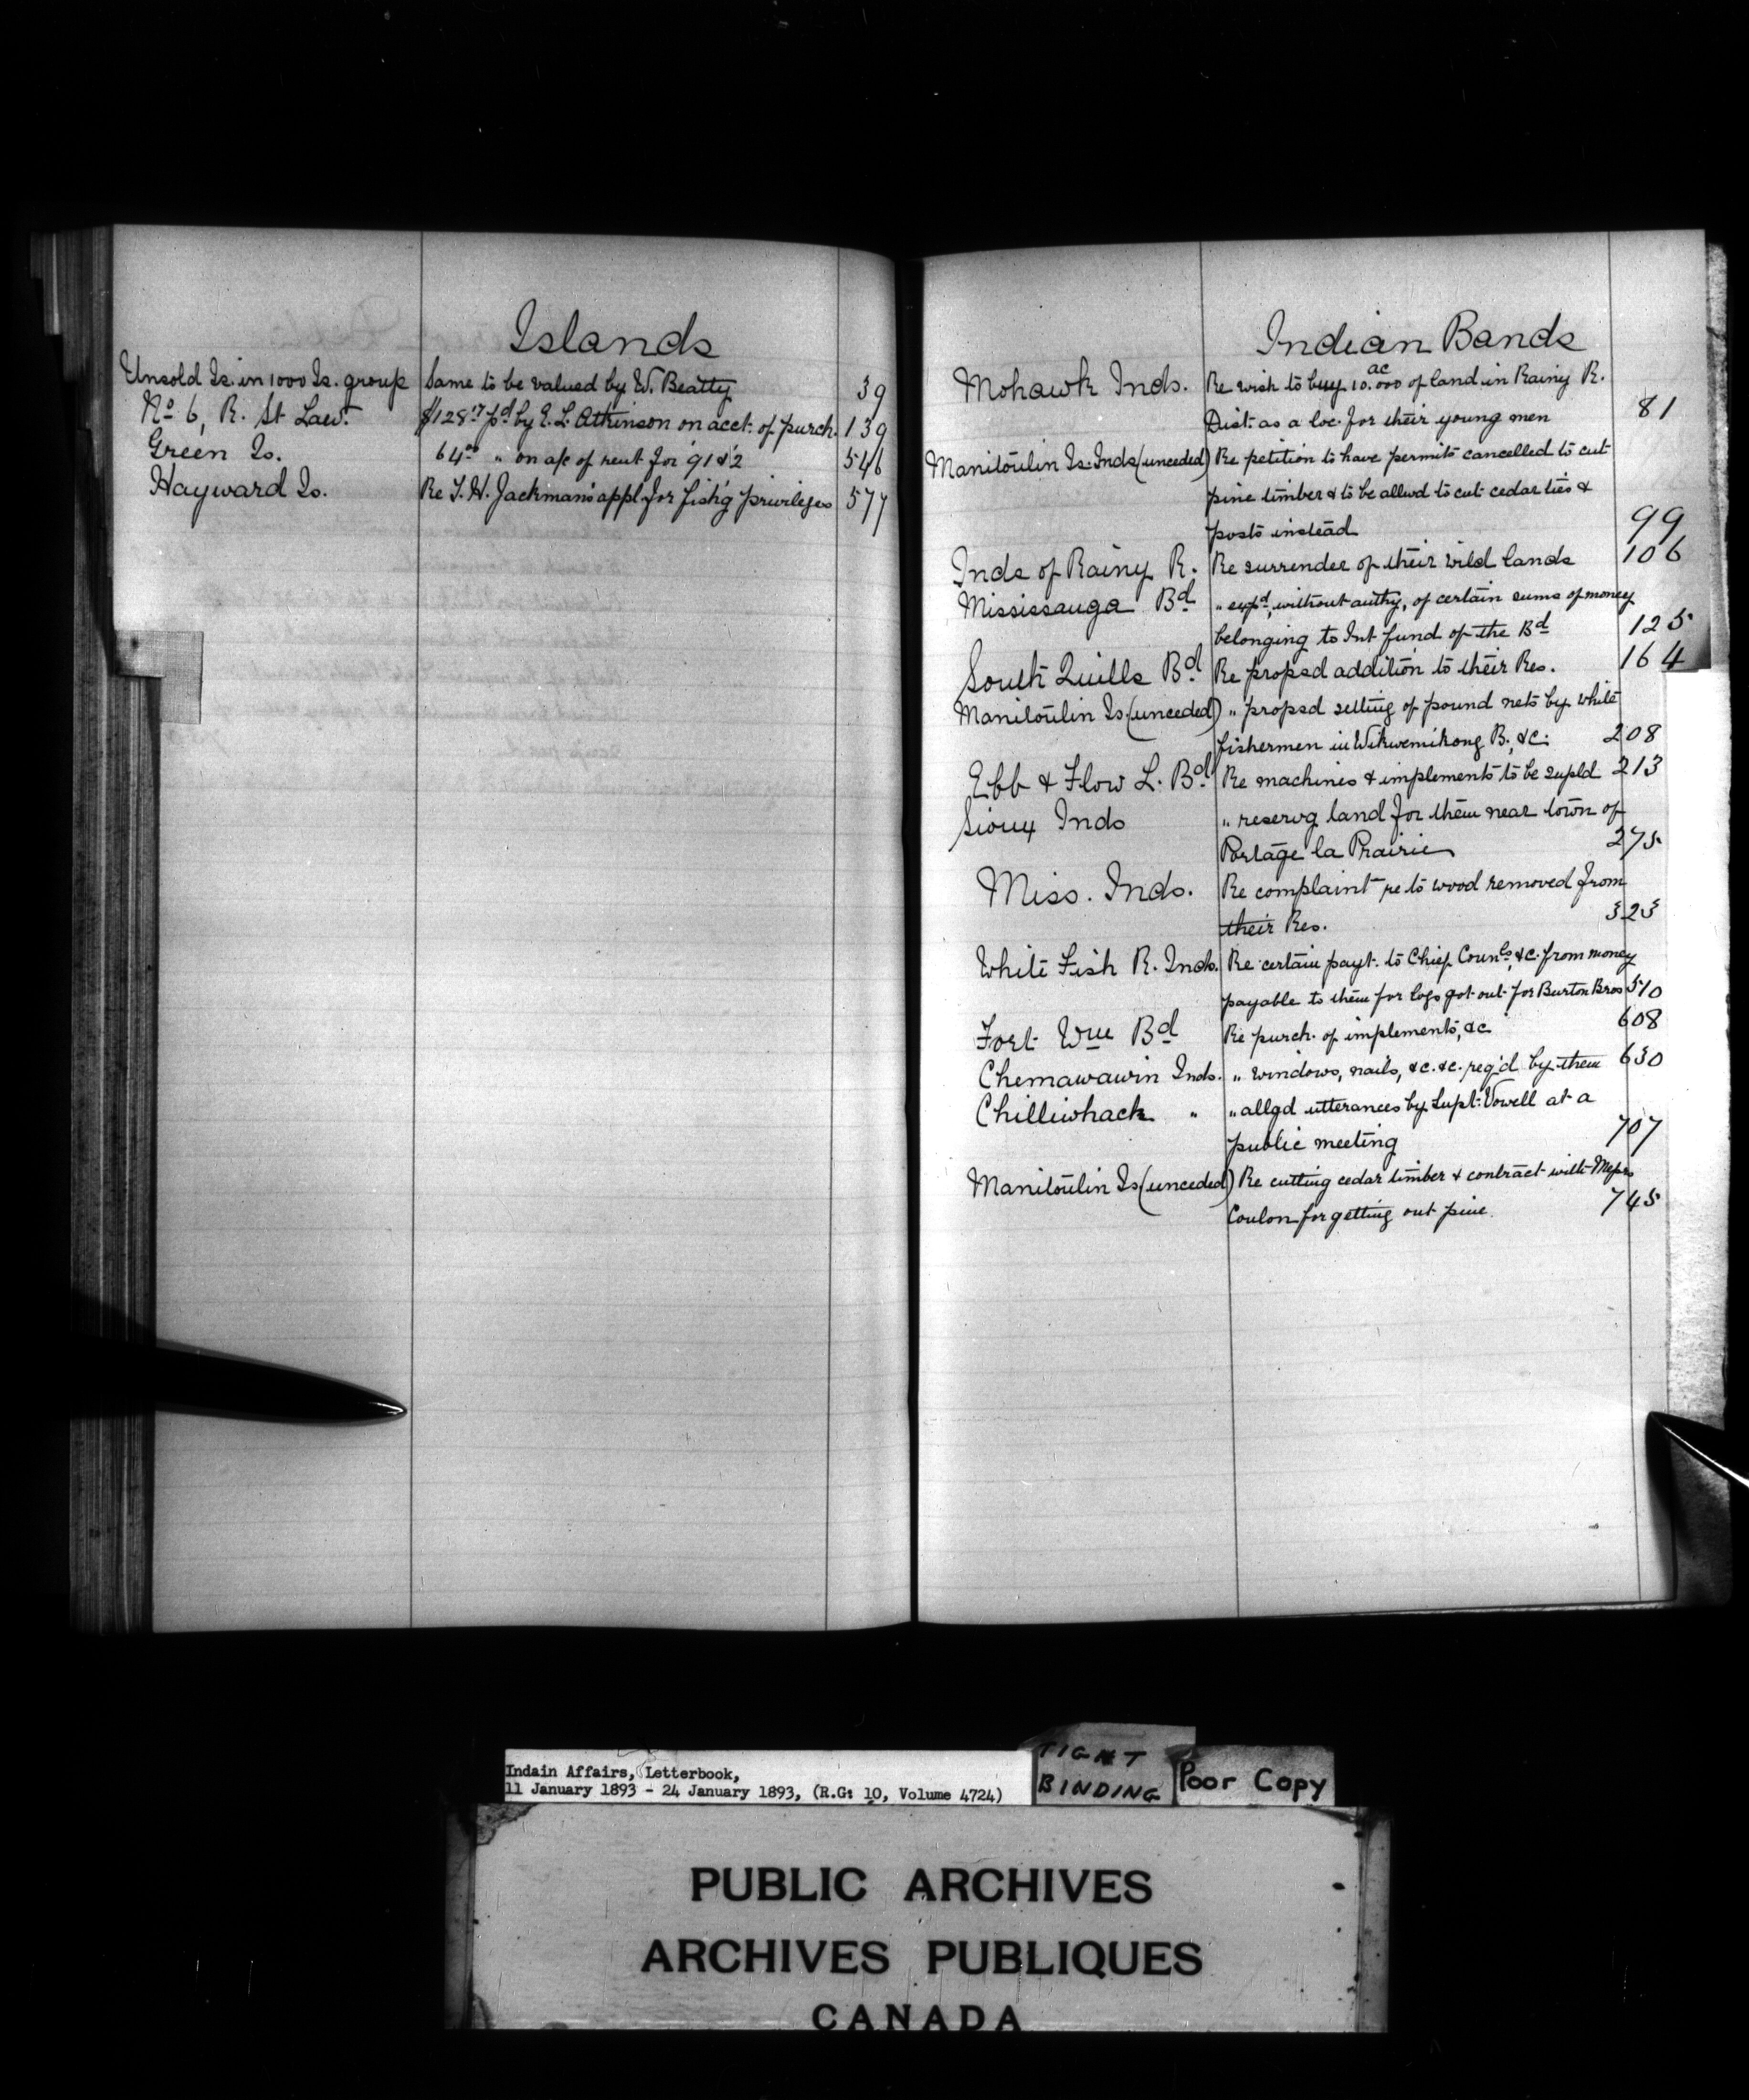 Islands
Unsold Is. in 1000 Is. group Same to be valued by W. Beatty 39
No 6, R. St Law. $128.17 pd by E. L. Atkinson on acct. of purch. 139
Green Is. 64.00 " on a/c of rent for '91 & '2 546
Hayward Is. Re T. H. Jackman's appl. for fish'g privileges 577
Indian Bands
Mohawk Inds. Re wish to buy 10.000 ac of land in Rainy R.
Dist. as a loc. for their young men 81
Manitoulin Is. Inds (unceded) Re petition to have permits cancelled to cut
pine timber & to be allwd to cut cedar ties &
posts instead 99
Inds of Rainy R. Re surrender of their wild lands 106
Mississauga Bd " expd, without authy, of certain sums of money
belonging to Int fund of the Bd 125
South Quills Bd Re propsd addition to their Res. 164
Manitoulin Is (unceded) " propsd setting of pound nets by white
fishermen in Wikwemikong B., &c. 208
Ebb & Flow L. Bd Re machines & implements to be supld 213
Sioux Inds " reservg land for them near town of
Portage la Prairie 275
Miss. Inds. Re complaint re to wood removed from
their Res. 323
White Fish R. Inds. Re certain payt. to Chief, Councls, &c. from money
payable to them for logs got out for Burton Bros 510
Fort Wm Bd Re purch. of implements, &c 608
Chemawawin Inds. " windows, nails, &c. &c. req'd by them 630
Chilliwhack " " allgd utterances by Supt. Vowell at a
public meeting 707
Manitoulin Is (unceded) Re cutting cedar timber & contract with Messrs
Coulon for getting out pine 745
Indain Affairs, Letterbook,
11 January 1893 - 24 January 1893, (R.G: 10, Volume 4724)
TIGHT
BINDING
Poor Copy
PUBLIC ARCHIVES
ARCHIVES PUBLIQUES
CANADA